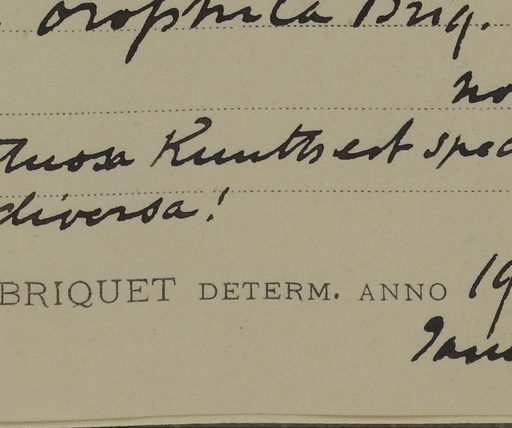 orophila Briq.
no
tuosa Kunth est spec
diversa!
BRIQUET DETERM. ANNO 19
Janu